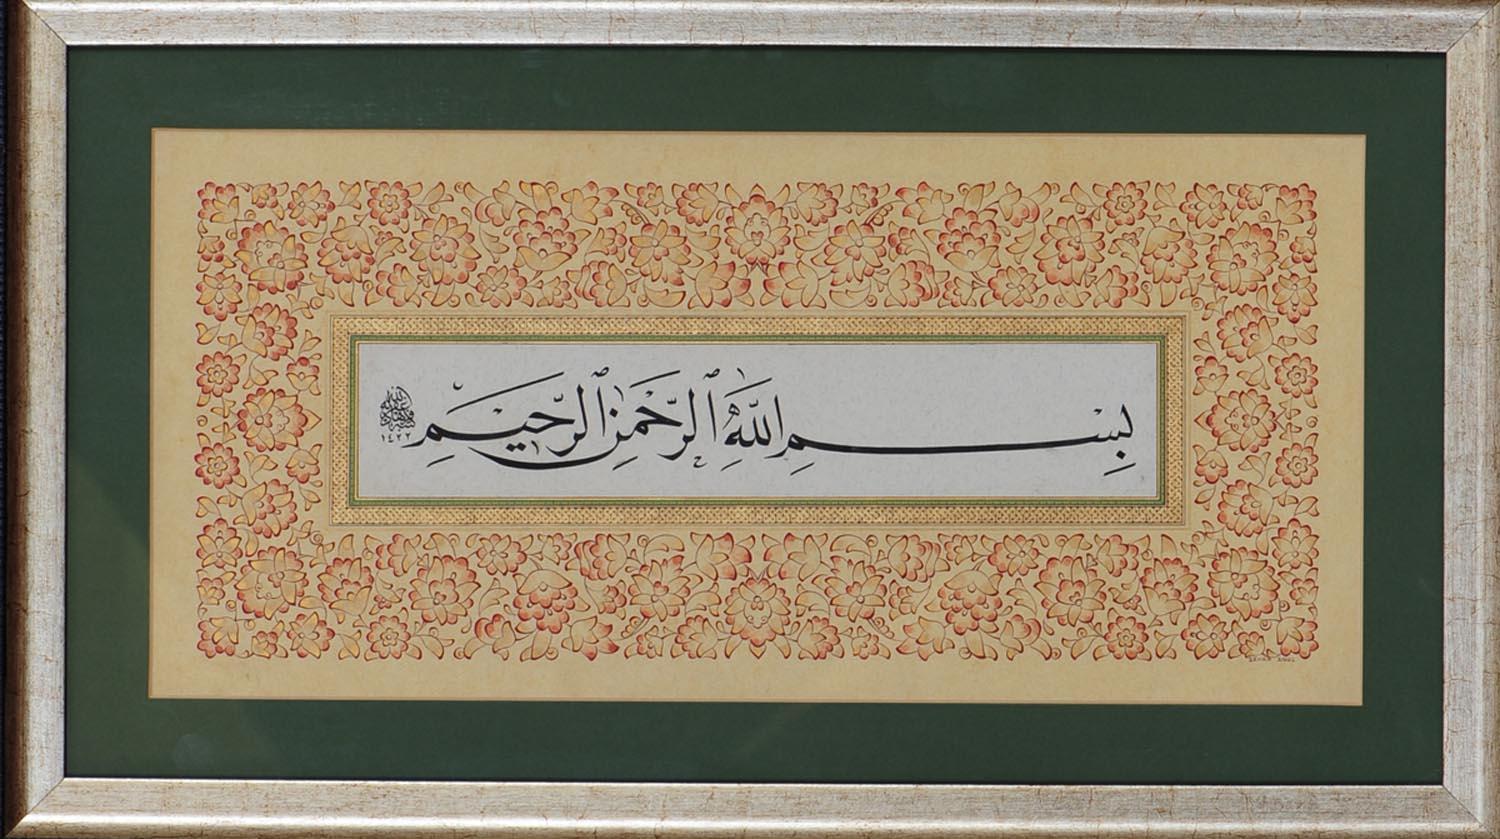 بِسْمِ اللَّهِ ٱلرَّحْمَنِ ٱلرَّحِيمِ
١٤٢٢